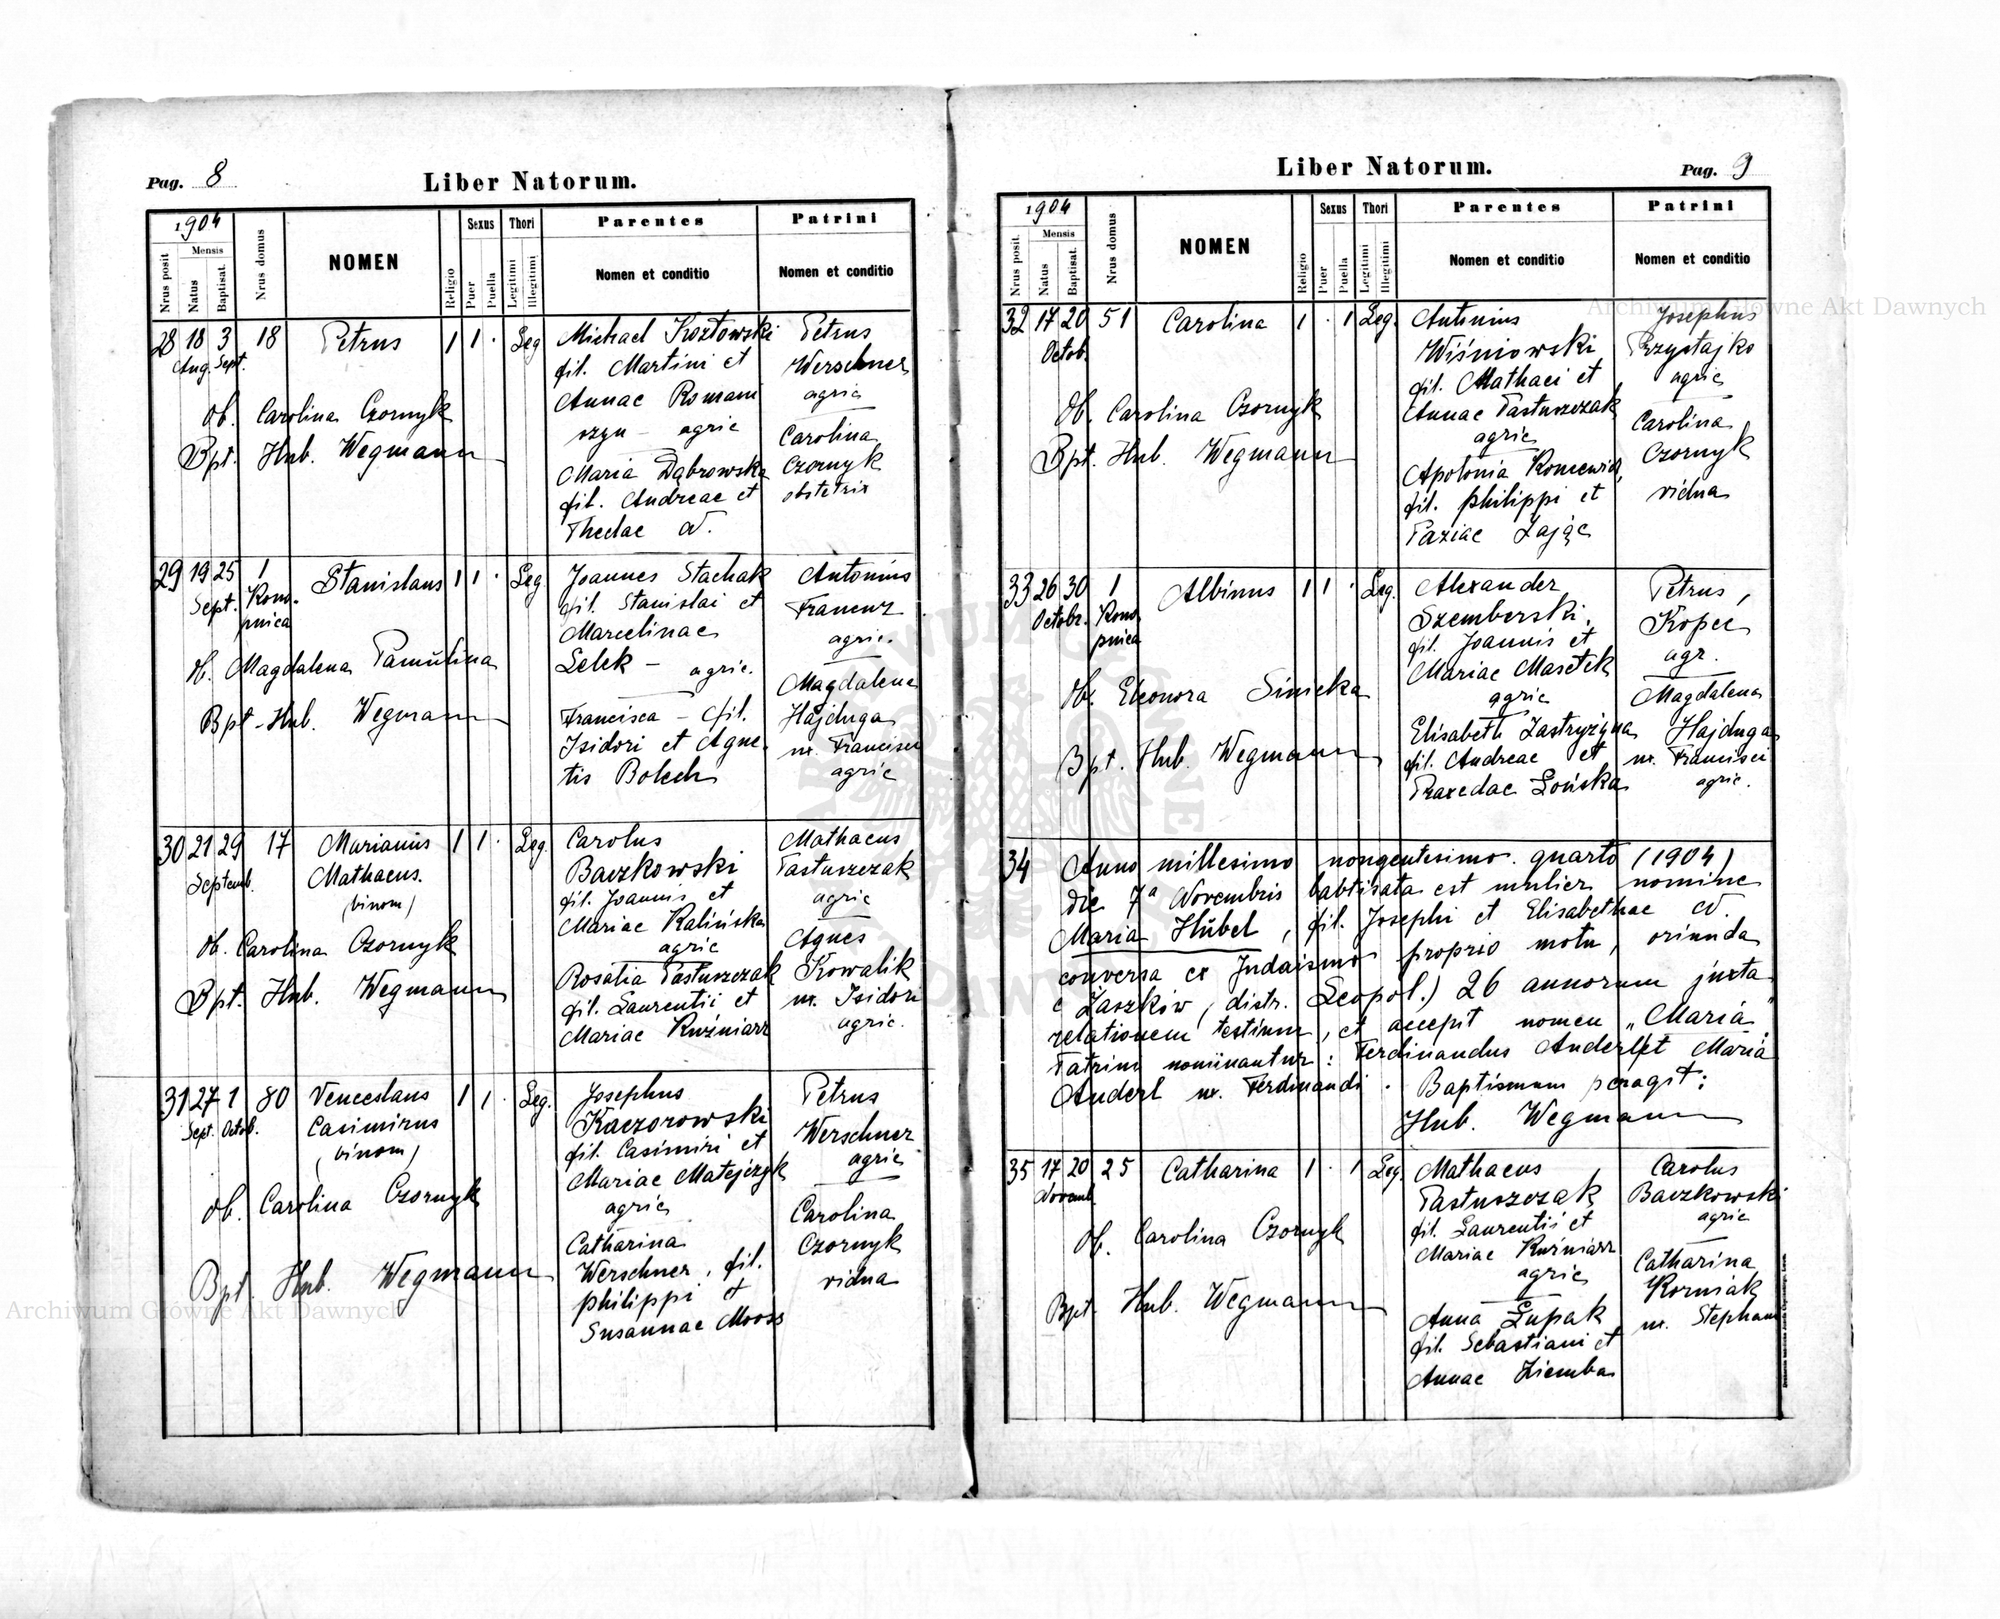 Pag. 8
Liber Natorum.
1904
Nrus posit
Mensis
Natus
Baptisat.
Nrus domus
NOMEN
Religio
Sexus
Puer
Puella
Thori
Legitimi
Illegitimi
Parentes
Nomen et conditio
Patrini
Nomen et conditio
28 18 3 18 Petrus 1 1 · Leg
Aug. Sept.
Ob. Carolina Czornyk
Bpt. Hub. Wegmann
Michael Kozłowski
fil. Martini et
Annae Romani
szyn – agric
Maria Dąbrowska
fil. Andreae et
Theclae N.
Petrus
Werschner
agric
Carolina
Czornyk
obstetrix
29 19 25 1 Stanislaus 1 1 · Leg
Sept. Kono-
pnica
Ob. Magdalena Pamulina
Bpt - Hub. Wegmann
Joannes Stachak
fil. Stanislai et
Marcelinae
Lelek – agric.
Francisca – fil.
Isidori et Agne-
tis Bolech
Antonius
Francuz
agric.
Magdalena
Hajduga
ux. Francisci
agric
30 21 29 17 Marianus 1 1 · Leg
Septemb. Mathaeus.
(binom)
Ob. Carolina Czornyk
Bpt. Hub. Wegmann
Carolus
Baczkowski
fil. Joannis et
Mariae Kalińska
agric
Rosalia Pastuszczak
fil. Laurentii et
Mariae Kuźniarz
Mathaeus
Pastuszczak
agric
Agnes
Kowalik
ux. Isidori
agric.
31 27 1 80 Venceslaus 1 1 · Leg.
Sept. Octob. Casimirus
(binom)
Ob. Carolina Czornyk
Bpt. Hub. Wegmann
Josephus
Kaczorowski
fil. Casimiri et
Mariae Matejczyk
agric
Catharina
Werschner, fil.
Philippi et
Susannae Mooss
Petrus
Werschner
agric
Carolina
Czornyk
vidua
Liber Natorum.
Pag. 9
1904
Nrus posit.
Mensis
Natus
Baptisat.
Nrus domus
NOMEN
Religio
Sexus
Puer
Puella
Thori
Legitimi
Illegitimi
Parentes
Nomen et conditio
Patrini
Nomen et conditio
32 17 20 51 Carolina 1 · 1 Leg.
Octob.
Ob. Carolina Czornyk
Bpt. Hub. Wegmann
Antonius
Wiśniowski
fil. Mathaei et
Annae Pastuszczak
agric
Apolonia
fil. Philippi et
Paziae Zając
Josephus
Przystajko
agric
Carolina
Czornyk
vidua
33 26 30 1 Albinus 1 1 · Leg.
Octobr. Kono-
pnica
Ob. Eleonora Sinicka
Bpt. Hub. Wegmann
Alexander
Szemberski.
fil. Joannis et
Mariae Masetik
agric
Elisabeth Zastryżna
fil. Andreae et
Praxedae Łońska
Petrus,
Kopeć
agr.
Magdalena
Hajduga
ux. Francisci
agric.
34 Anno millesimo nongentesimo quarto (1904)
die 7ª Novembris babtisata est mulier nomine
Maria Hübel, fil. Josephi et Elisabethae N.
conversa ex Judaismo proprio motu, oriunda
e Zaszków, distr. Leopol.) 26 annorum juxta
relationem testium, et accepit nomen „Maria".
Patrini nominantur: Ferdinandus Anderl et Maria
Anderl ux. Ferdinandi. Baptismum peragit:
Hub. Wegmann
35 17 20 25 Catharina 1 · 1 Leg.
Novemb.
Ob. Carolina Czornyk
Bpt. Hub. Wegmann
Mathaeus
Pastuszczak
fil. Laurentii et
Mariae Kuźniarz
agric
Anna Łupak
fil. Sebastiani et
Annae Ziemba
Carolus
Baczkowski
agric
Catharina
Korniak
ux. Stephani
Archiwum Główne Akt Dawnych
Archiwum Główne Akt Dawnych